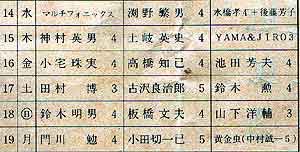 14 水 マルチフォニックス 渕野繁男 4 水橋孝4+後藤芳子
15 木 神村英男 4 土岐英史 4 YAMA&JIRO3
16 金 小宅珠実 4 高橋知己 4 池田芳夫 4
17 土 田村博 3 古沢良治郎 5 鈴木勲 4
18 ㊐ 鈴木明男 4 板橋文夫 4 山下洋輔 3
19 月 門川勉 4 小田切一巳 5 黄金虫(中村誠一5)